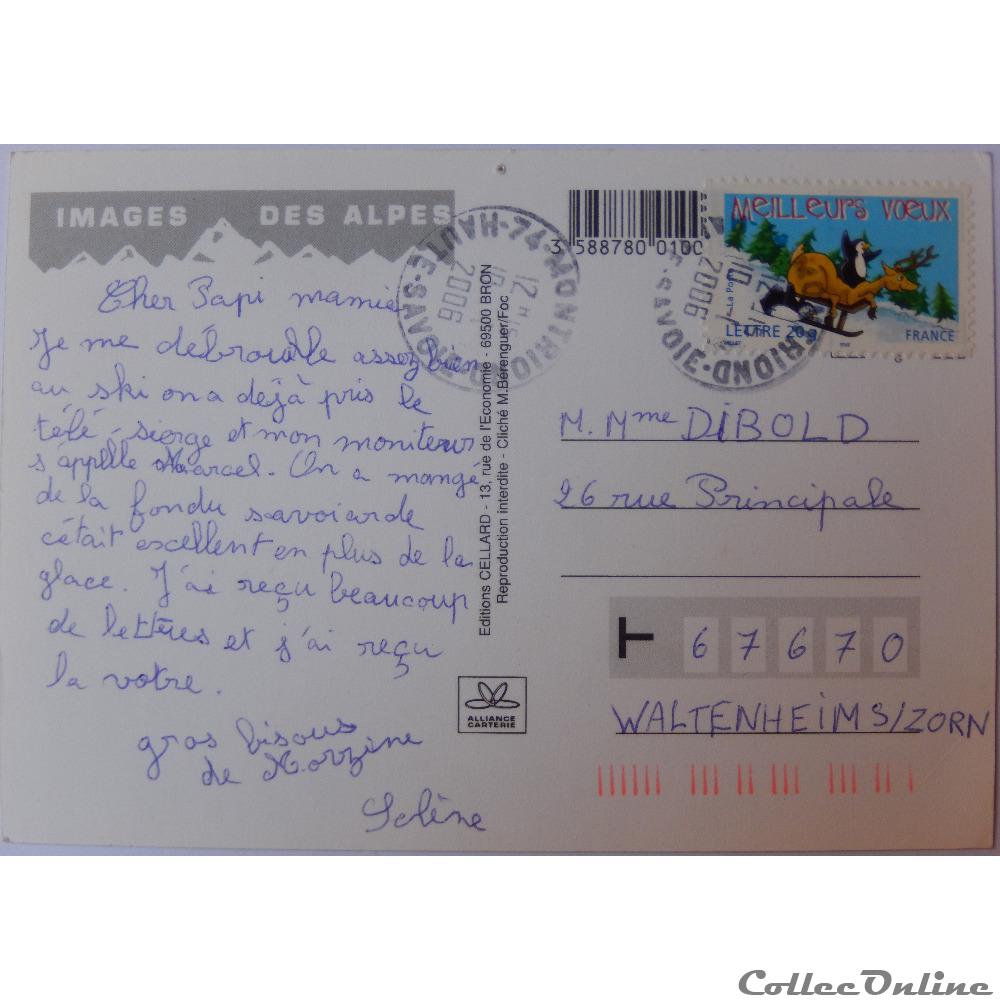 IMAGES DES ALPES
Cher Papi mamie
Je me débrouille assez bien
au ski on a déjà pris le
télé-siège et mon moniteur
s'appelle Marcel. On a mangé
de la fondu savoiarde
c'était excellent en plus de la
glace. J'ai reçu beaucoup
de lettres et j'ai reçu
la votre.
gros bisous
de Morzine
Solène
Editions CELLARD - 13, rue de l'Economie - 69500 BRON
Reproduction interdite - Cliché M.Bérenguer/Foc
ALLIANCE
CARTERIE
3 588780 0100
74-MONTRIOND
HAUTE-SAVOIE
12 H
2006
MEILLEURS VŒUX
La Po
LETTRE 20g
FRANCE
2006
RIOND
E.SAVOIE
M. Mme DIBOLD
26 rue Principale
67670
WALTENHEIM S/ZORN
CollecOnline